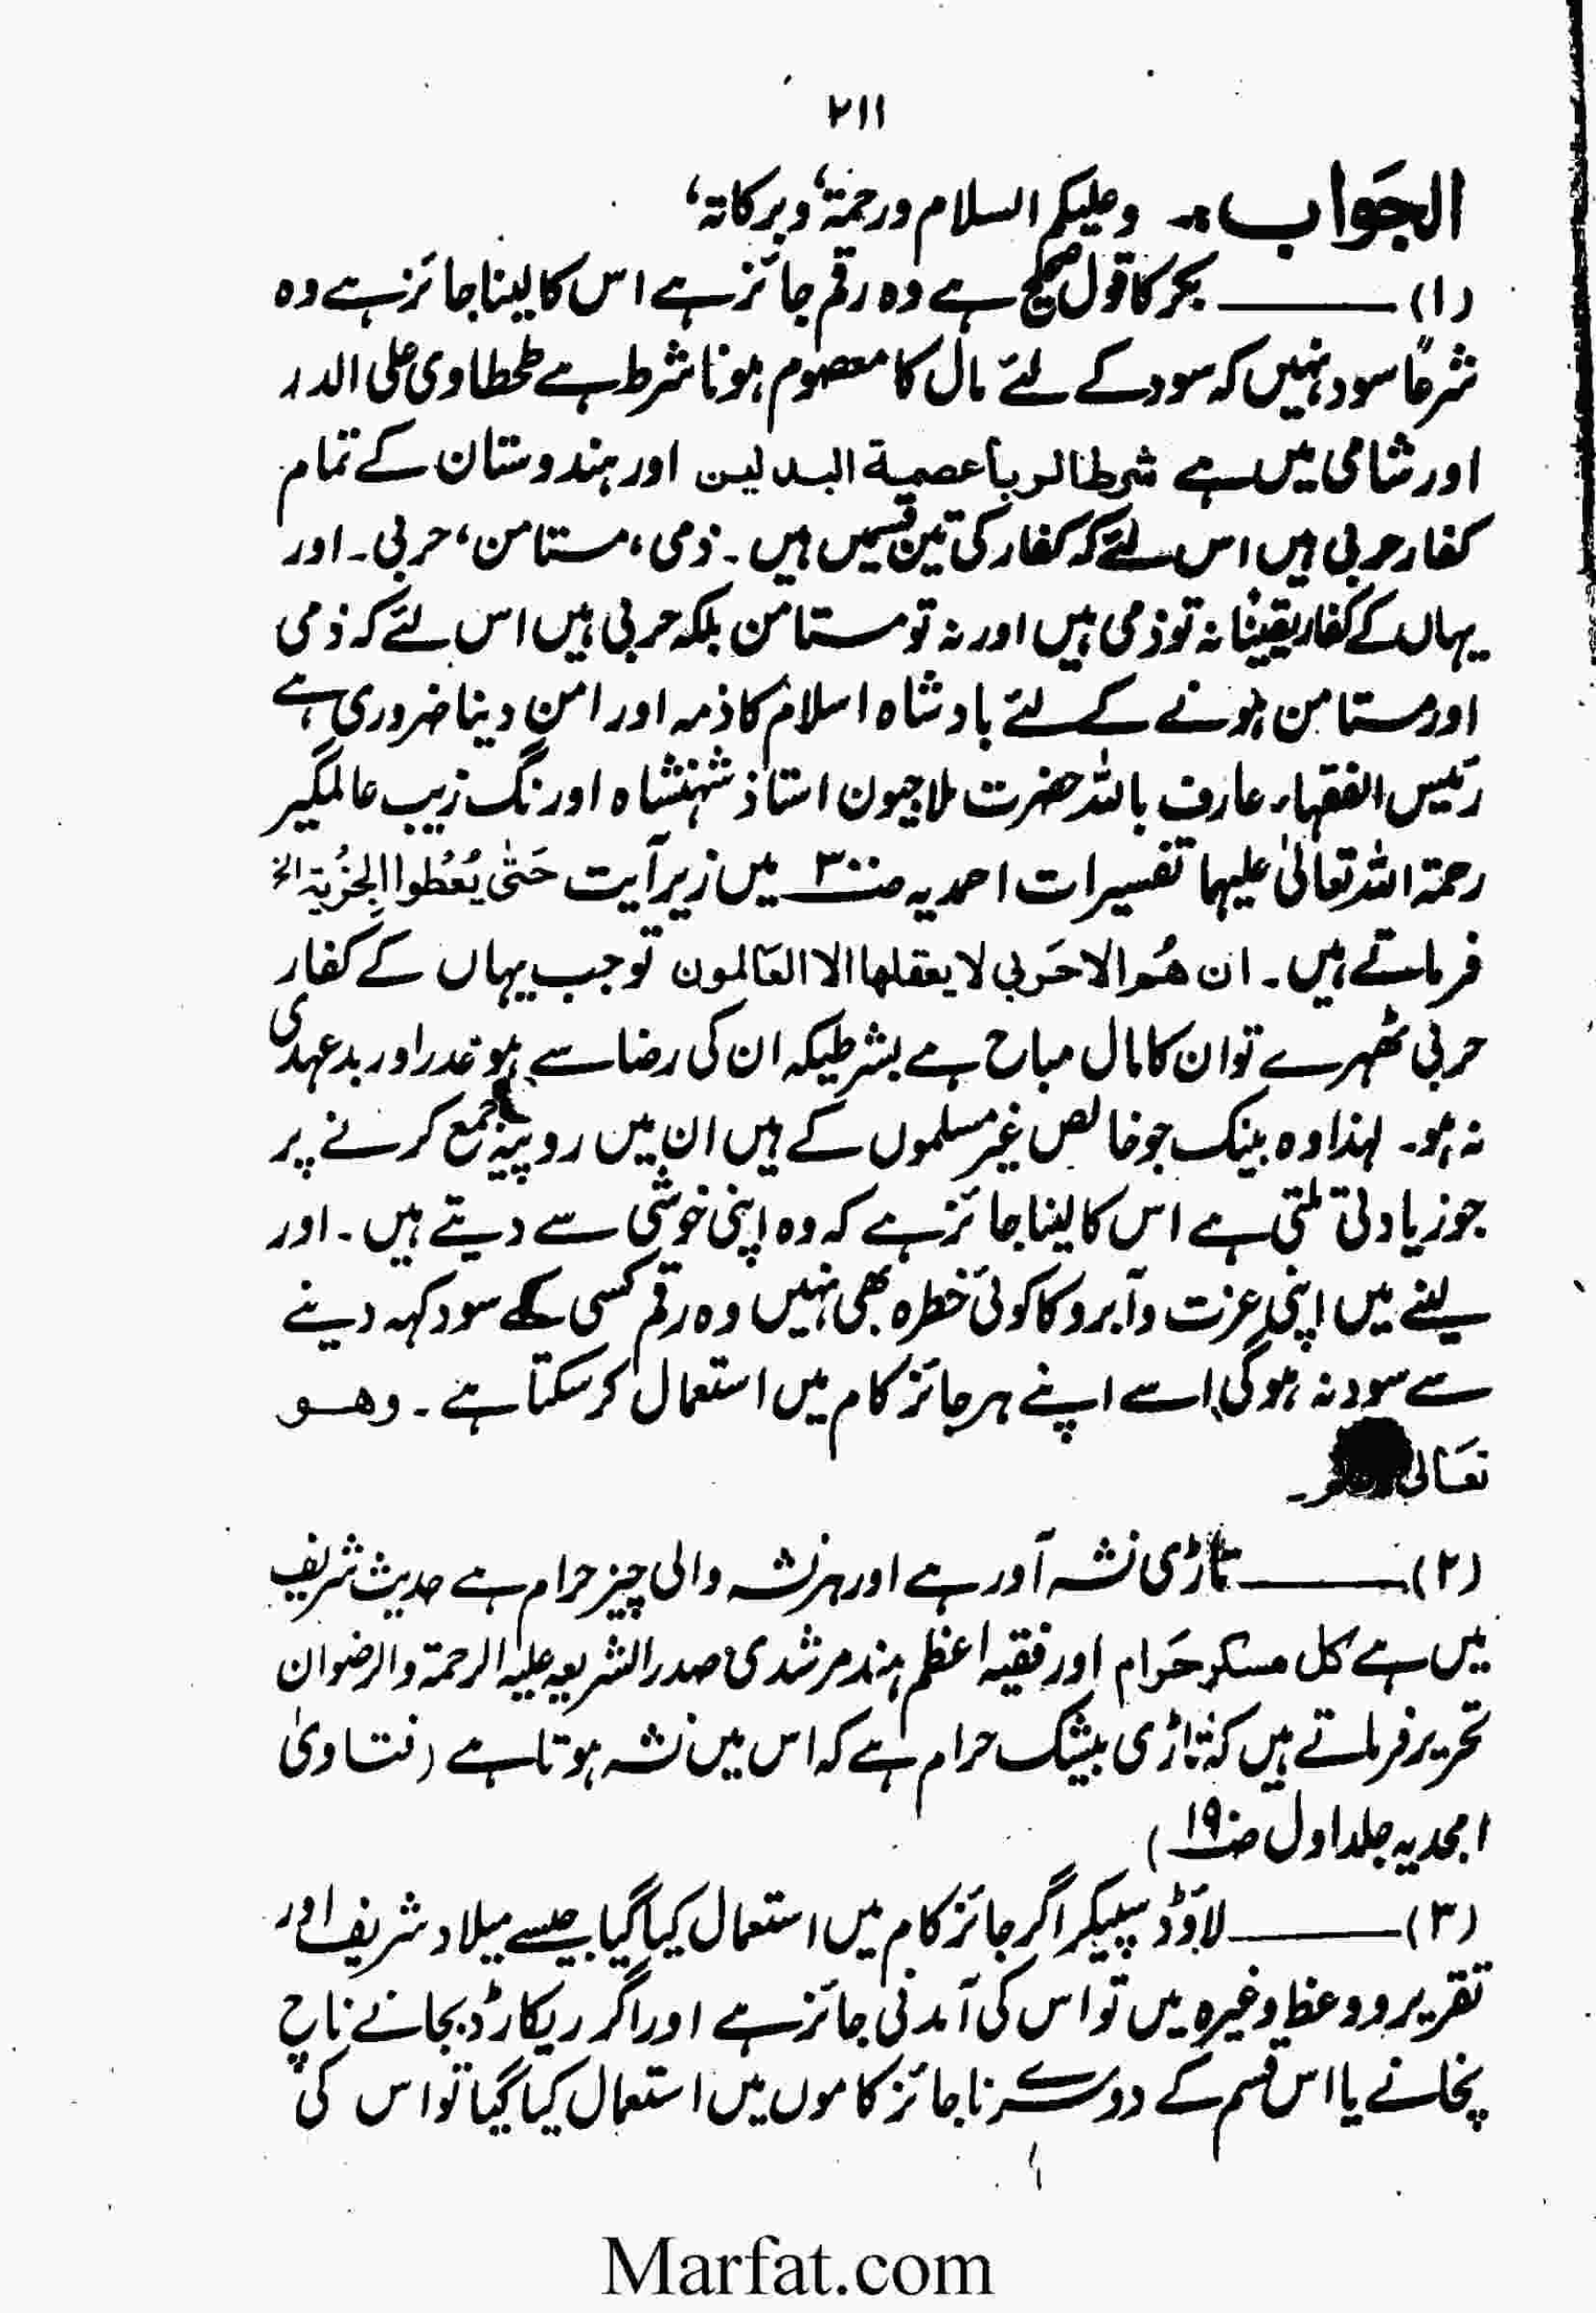 ٢١١
الجَوَاب:۔ وعلیکم السلام ورحمۃ، وبرکاتہ،
(١) ــــــ بکر کا قول صحیح ہے وہ رقم جائز ہے اس کا لینا جائز ہے وہ
شرعًا سود نہیں کہ سود کے لئے مال کا معصوم ہونا شرط ہے طحطاوی علی الدر
اور شامی میں ہے شرط الربا عصمۃ البدلین اور ہندوستان کے تمام
کفار حربی ہیں اس لئے کہ کفار کی تین قسمیں ہیں۔ ذمی، مستامن، حربی۔ اور
یہاں کے کفار یقینًا نہ تو ذمی ہیں اور نہ تو مستامن بلکہ حربی ہیں اس لئے کہ ذمی
اور مستامن ہونے کے لئے بادشاہ اسلام کا ذمہ اور امن دینا ضروری ہے
رئیس الفقہاء عارف باللہ حضرت ملا جیون استاذ شہنشاہ اورنگ زیب عالمگیر
رحمۃ اللہ تعالیٰ علیہما تفسیرات احمدیہ صـ٣٠٠ میں زیر آیت حَتّٰی یُعْطُوا الْجِزْیَۃ الخ
فرماتے ہیں۔ ان ھُم الا حَربی لا یعقلھا الا العَالمون تو جب یہاں کے کفار
حربی ٹھہرے تو ان کا مال مباح ہے بشرطیکہ ان کی رضا سے ہو غدر اور بدعہدی
نہ ہو۔ لہذا وہ بینک جو خالص غیر مسلموں کے ہیں ان میں روپیہ جمع کرنے پر
جو زیادتی ملتی ہے اس کا لینا جائز ہے کہ وہ اپنی خوشی سے دیتے ہیں۔ اور
لینے میں اپنی عزت و آبرو کا کوئی خطرہ بھی نہیں وہ رقم کسی کے سود کہہ دینے
سے سود نہ ہوگی اسے اپنے ہر جائز کام میں استعمال کر سکتا ہے۔ وھو
تعَالیٰ
(٢) ــــــ تاڑی نشہ آور ہے اور ہر نشہ والی چیز حرام ہے حدیث شریف
میں ہے کل مسکر حَرام اور فقیہ اعظم ہند مرشدی صدر الشریعہ علیہ الرحمۃ والرضوان
تحریر فرماتے ہیں کہ تاڑی بیشک حرام ہے کہ اس میں نشہ ہوتا ہے (فتاویٰ
امجدیہ جلد اول صـ١٩)
(٣) ــــــ لاؤڈ سپیکر اگر جائز کام میں استعمال کیا گیا جیسے میلاد شریف اور
تقریر و وعظ وغیرہ میں تو اس کی آمدنی جائز ہے اور اگر ریکارڈ بجانے ناچ
نچانے یا اس قسم کے دوسرے ناجائز کاموں میں استعمال کیا گیا تو اس کی
Marfat.com